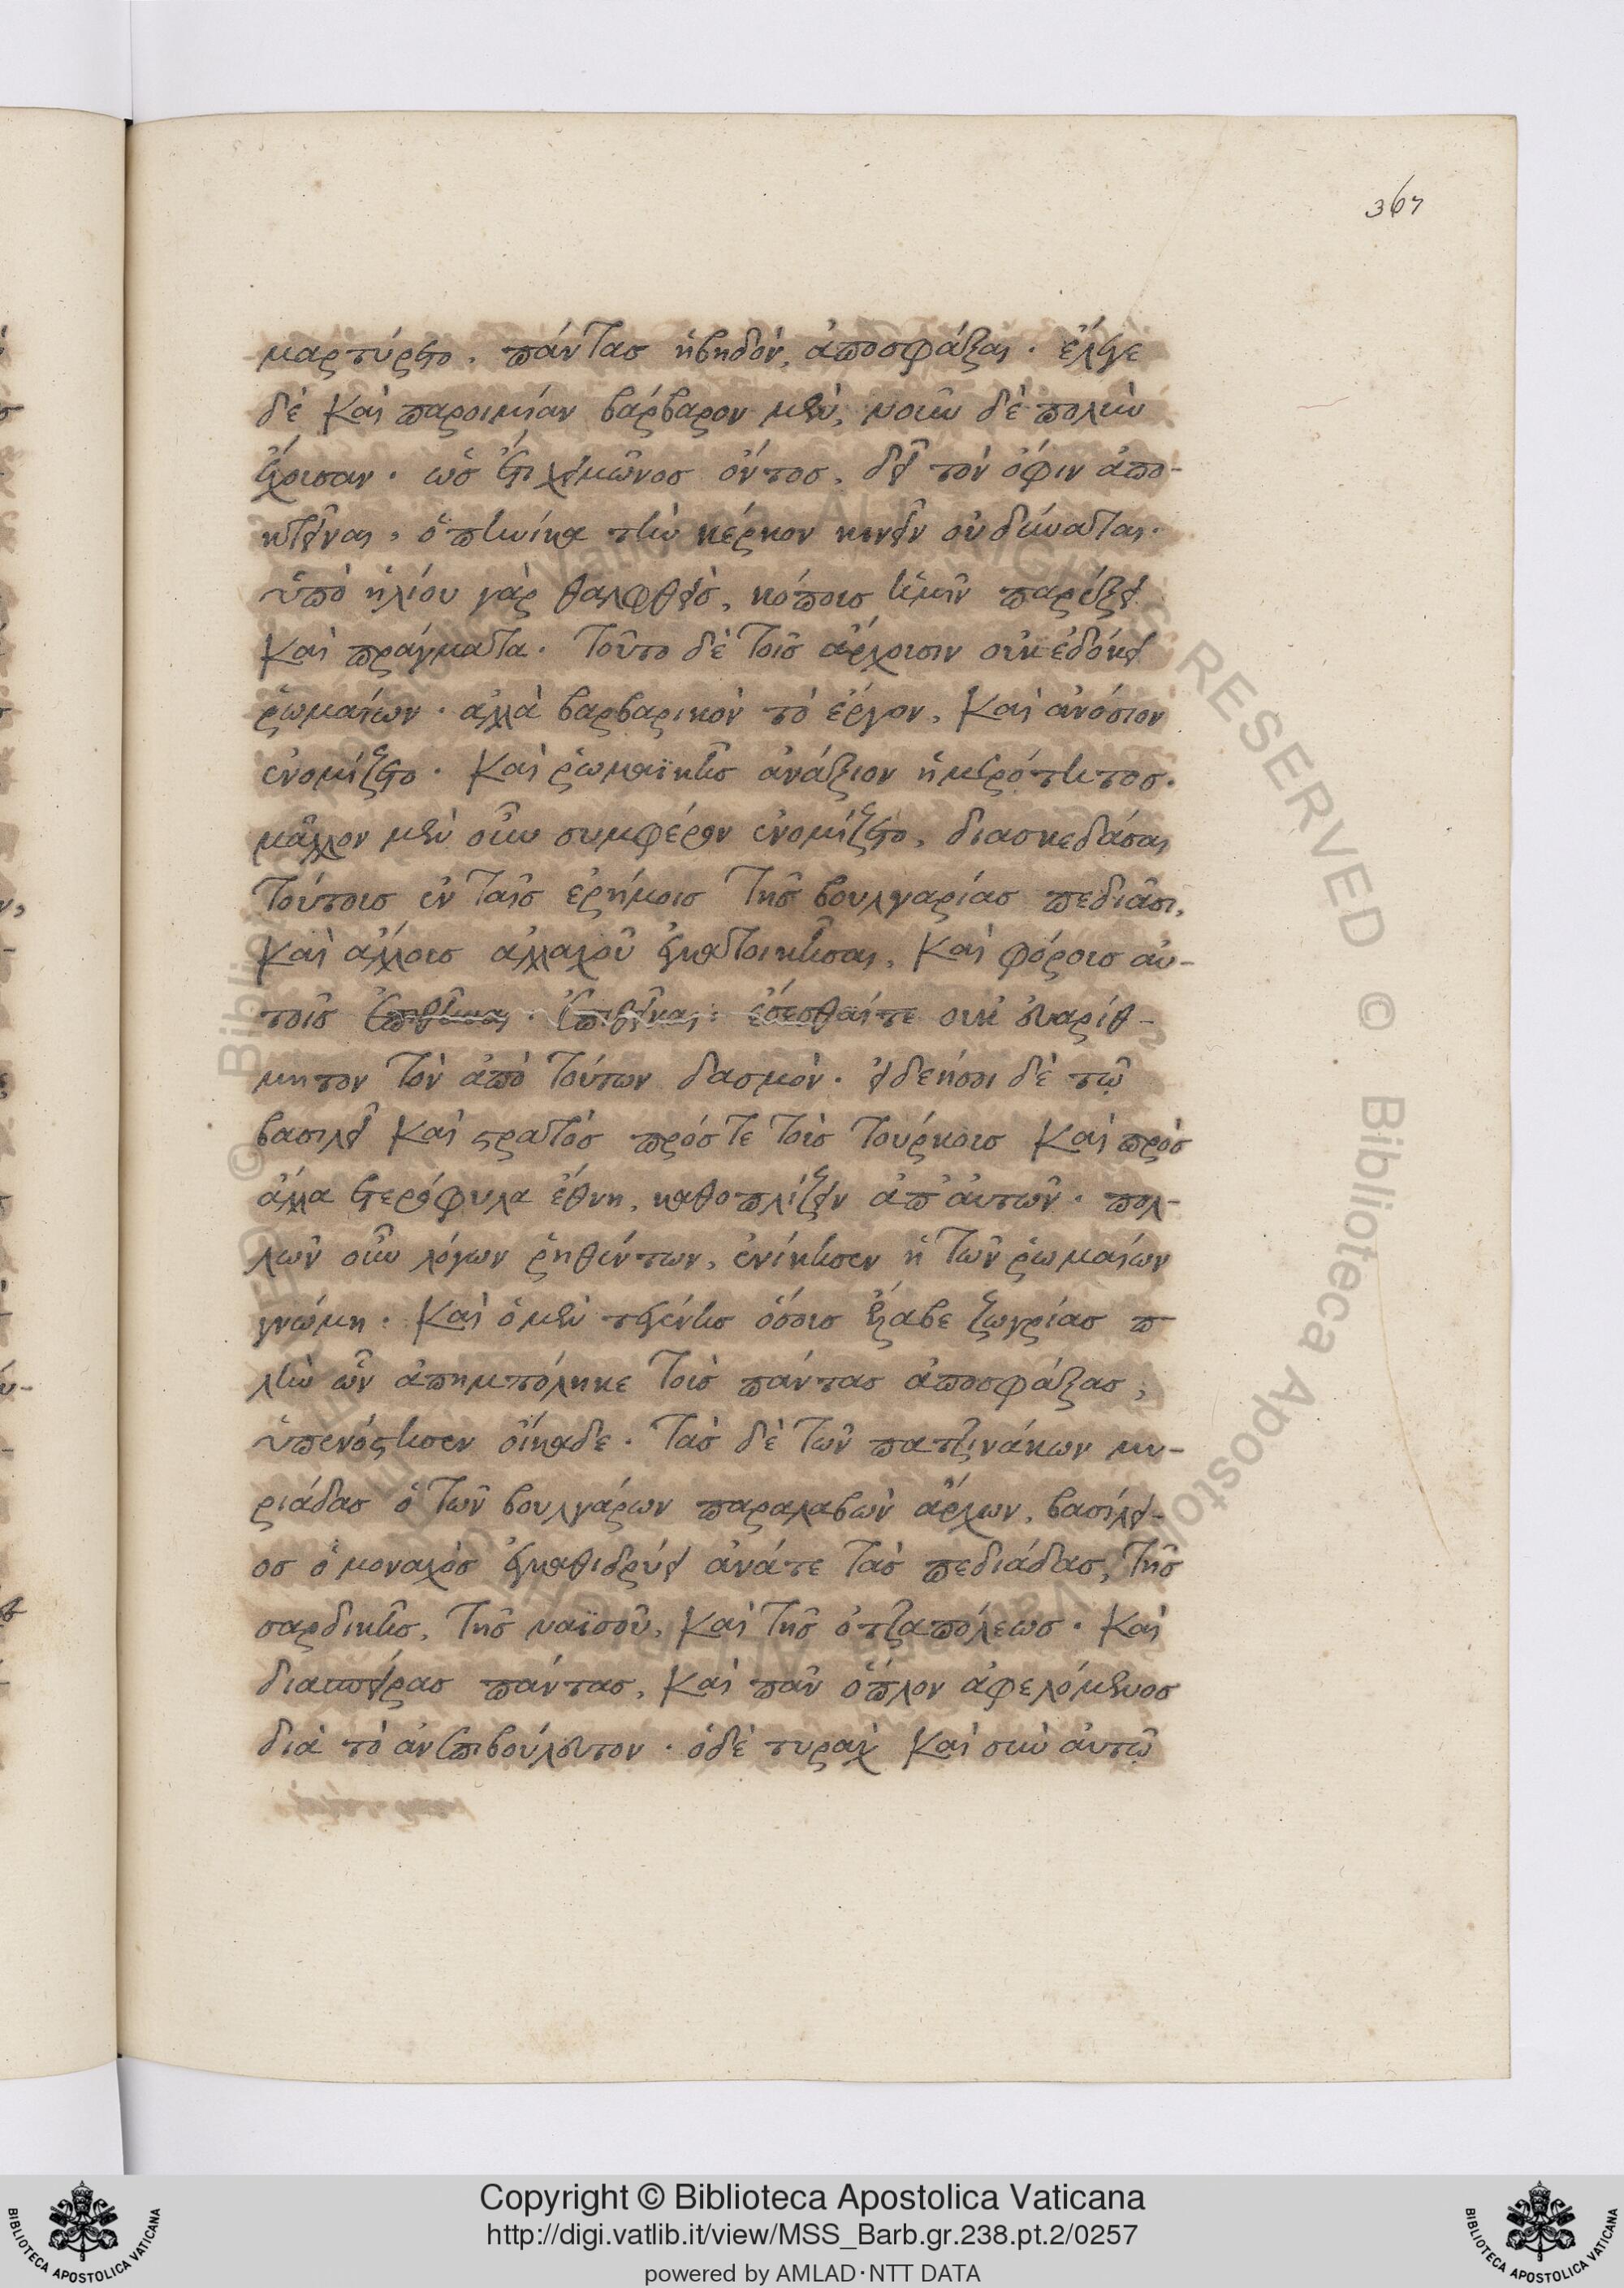 367
μαρτύρετο. πάντας ἡβηδόν, ἀποσφάξαι. ἔλεγε
δὲ καὶ παροιμίαν βάρβαρον μὲν, νοῦν δὲ πολὺν
ἔχουσαν. ὡς ἔτι χειμῶνος ὄντος, δεῖ τὸν ὄφιν ἀπο-
κτεῖναι, ὁπηνίκα τὴν κέρκον κινεῖν οὐ δύναται.
ὑπὸ ἡλίου γὰρ θαλφθεὶς, κόπους ἡμῖν παρέξει
καὶ πράγματα. τοῦτο δὲ τοῖς ἄρχουσιν οὐκ ἐδόκει
ῥωμαίων. ἀλλὰ βαρβαρικὸν τὸ ἔργον, καὶ ἀνόσιον
ἐνομίζετο. καὶ ῥωμαϊκῆς ἀνάξιον ἡμερότητος.
μᾶλλον μὲν οὖν συμφέρον ἐνομίζετο, διασκεδάσαι
τούτους ἐν ταῖς ἐρήμοις τῆς βουλγαρίας πεδιάσι,
καὶ ἄλλους ἀλλαχοῦ ἐγκατοικῆσαι, καὶ φόρους αὐ-
τοῖς ἐπιθεῖναι. ἔσεσθαί τε οὐκ εὐαρίθ-
μητον τὸν ἀπὸ τούτων δασμὸν. εἰ δεήσοι δὲ τῷ
βασιλεῖ καὶ στρατὸς πρός τε τοὺς τούρκους καὶ πρὸς
ἄλλα ἑτερόφυλα ἔθνη, καθοπλίζειν ἀπ' αὐτῶν. πολ-
λῶν οὖν λόγων ῥηθέντων, ἐνίκησεν ἡ τῶν ῥωμαίων
γνώμη. καὶ ὁ μὲν κεγένης ὅσους ἔλαβε ζωγρίας π
λὴν ὧν ἀπημπόληκε τοὺς πάντας ἀποσφάξας,
ὑπενόστησεν οἴκαδε. τὰς δὲ τῶν πατζινάκων μυ-
ριάδας ὁ τῶν βουλγάρων παραλαβὼν ἄρχων, βασίλει-
ος ὁ μοναχὸς ἐγκαθιδρύει ἀνά τε τὰς πεδιάδας, τῆς
σαρδικῆς, τῆς ναϊσοῦ, καὶ τῆς ὀτζαπόλεως. καὶ
διασπείρας πάντας, καὶ πᾶν ὅπλον ἀφελόμενος
διὰ τὸ ἀνεπιβούλευτον. ὁ δὲ τυρὰχ καὶ σὺν αὐτῷ
Copyright © Biblioteca Apostolica Vaticana
http://digi.vatlib.it/view/MSS_Barb.gr.238.pt.2/0257
powered by AMLAD·NTT DATA
BIBLIOTECA APOSTOLICA VATICANA
BIBLIOTECA APOSTOLICA VATICANA